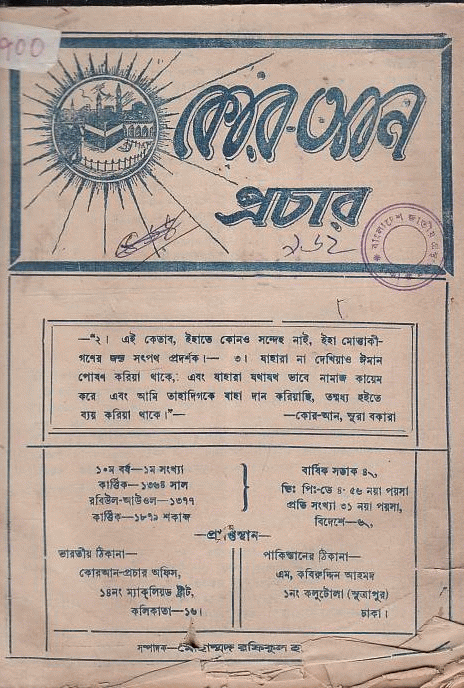 900
কোর-আন
প্রচার
বাংলাদেশ জাতীয়
—"২। এই কেতাব, ইহাতে কোনও সন্দেহ নাই, ইহা মোত্তাকী-
গণের জন্য সৎপথ প্রদর্শক।— ৩। যাহারা না দেখিয়াও ঈমান
পোষণ করিয়া থাকে, এবং যাহারা যথাযথ ভাবে নামাজ কায়েম
করে এবং আমি তাহাদিগকে যাহা দান করিয়াছি, তন্মধ্য হইতে
ব্যয় করিয়া থাকে।"— —কোর-আন, সুরা বকারা
১০ম বর্ষ—১ম সংখ্যা
কার্ত্তিক—১৩৬৪ সাল
রবিউল-আউওল—১৩৭৭
কার্ত্তিক—১৮৭৯ শকাব্দ
বার্ষিক সডাক ৪৲
ভিঃ পিঃ-তে ৪·৫৬ নয়া পয়সা
প্রতি সংখ্যা ৩১ নয়া পয়সা,
বিদেশে—৬৲
—প্রাপ্তিস্থান—
ভারতীয় ঠিকানা—
কোরআন-প্রচার অফিস,
১৪নং ম্যাকলিয়ড ষ্ট্রীট,
কলিকাতা—১৬।
পাকিস্তানের ঠিকানা—
এম, কবিরুদ্দিন আহমদ
১নং কলুটোলা (সুত্রাপুর)
ঢাকা।
সম্পাদক—মোহাম্মদ রফিকুল